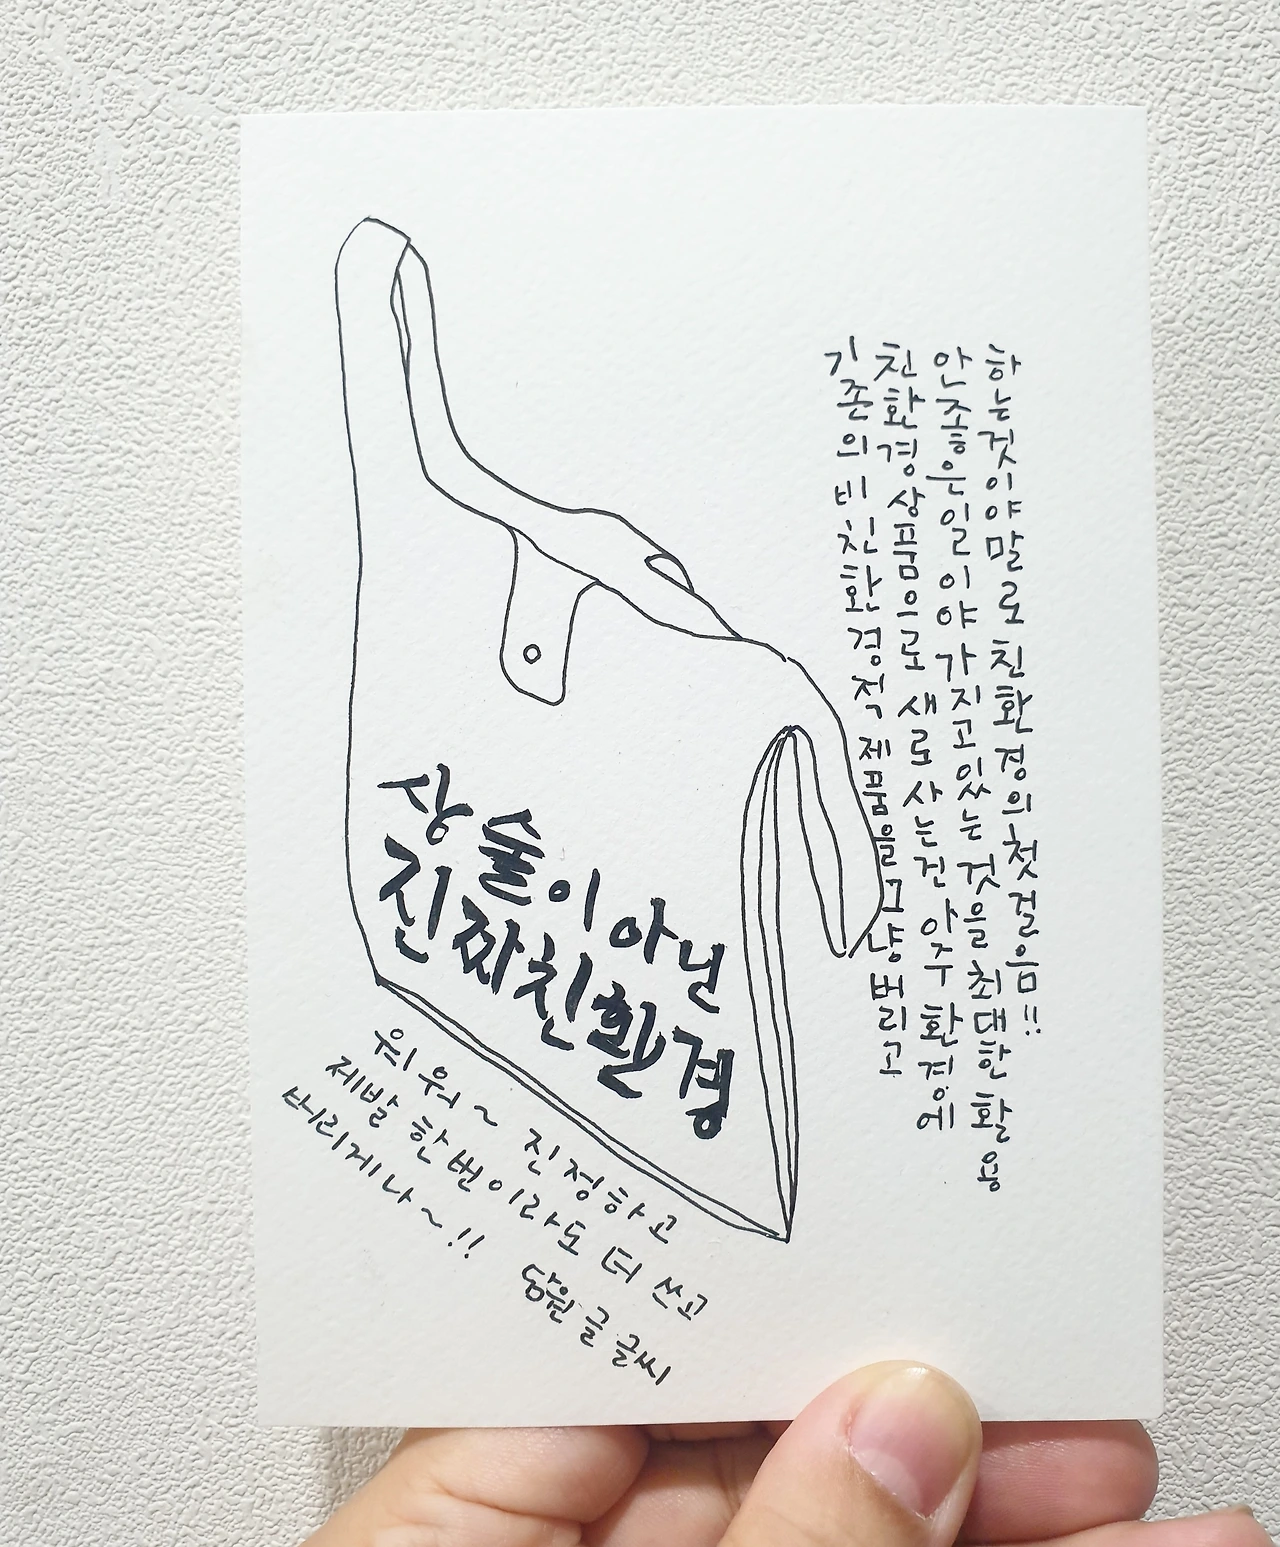 상술이 아닌
진짜친환경
기존의 비친환경적 제품을 그냥 버리고
친환경 상품으로 새로 사는건 아주 환경에
안좋은일이야 가지고 있는 것을 최대한 활용
하는것이야말로 친환경의 첫걸음!!
워워~ 진정하고
제발 한번이라도 더 쓰고
버리게나~!!
담원 글 글씨